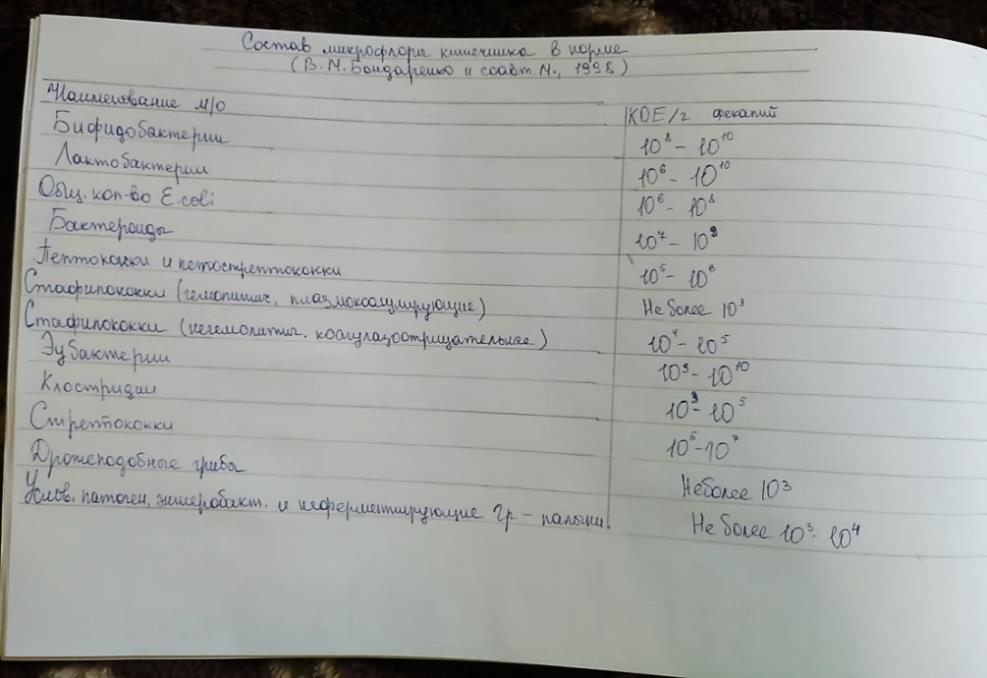 Состав микрофлоры кишечника в норме
(В.М. Бондаренко и соавт М., 1998)
Наименование м/о КОЕ/г фекалий
Бифидобактерии 10⁸ - 10¹⁰
Лактобактерии 10⁶ - 10¹⁰
Общ. кол-во E. coli 10⁶ - 10⁸
Бактероиды 10⁷ - 10⁹
Пептококки и петострептококки 10⁵ - 10⁶
Стафилококки (гемолитич. плазмокоагулирующие) Не более 10³
Стафилококки (негемолитич. коагулазоотрицательные) 10⁴ - 10⁵
Эубактерии 10⁹ - 10¹⁰
Клостридии 10³ - 10⁵
Стрептококки 10⁵ - 10⁷
Дрожеподобные грибы Не более 10³
Услов. патоген. энтеробакт. и неферментирующие Гр - палочки. Не более 10³ - 10⁴